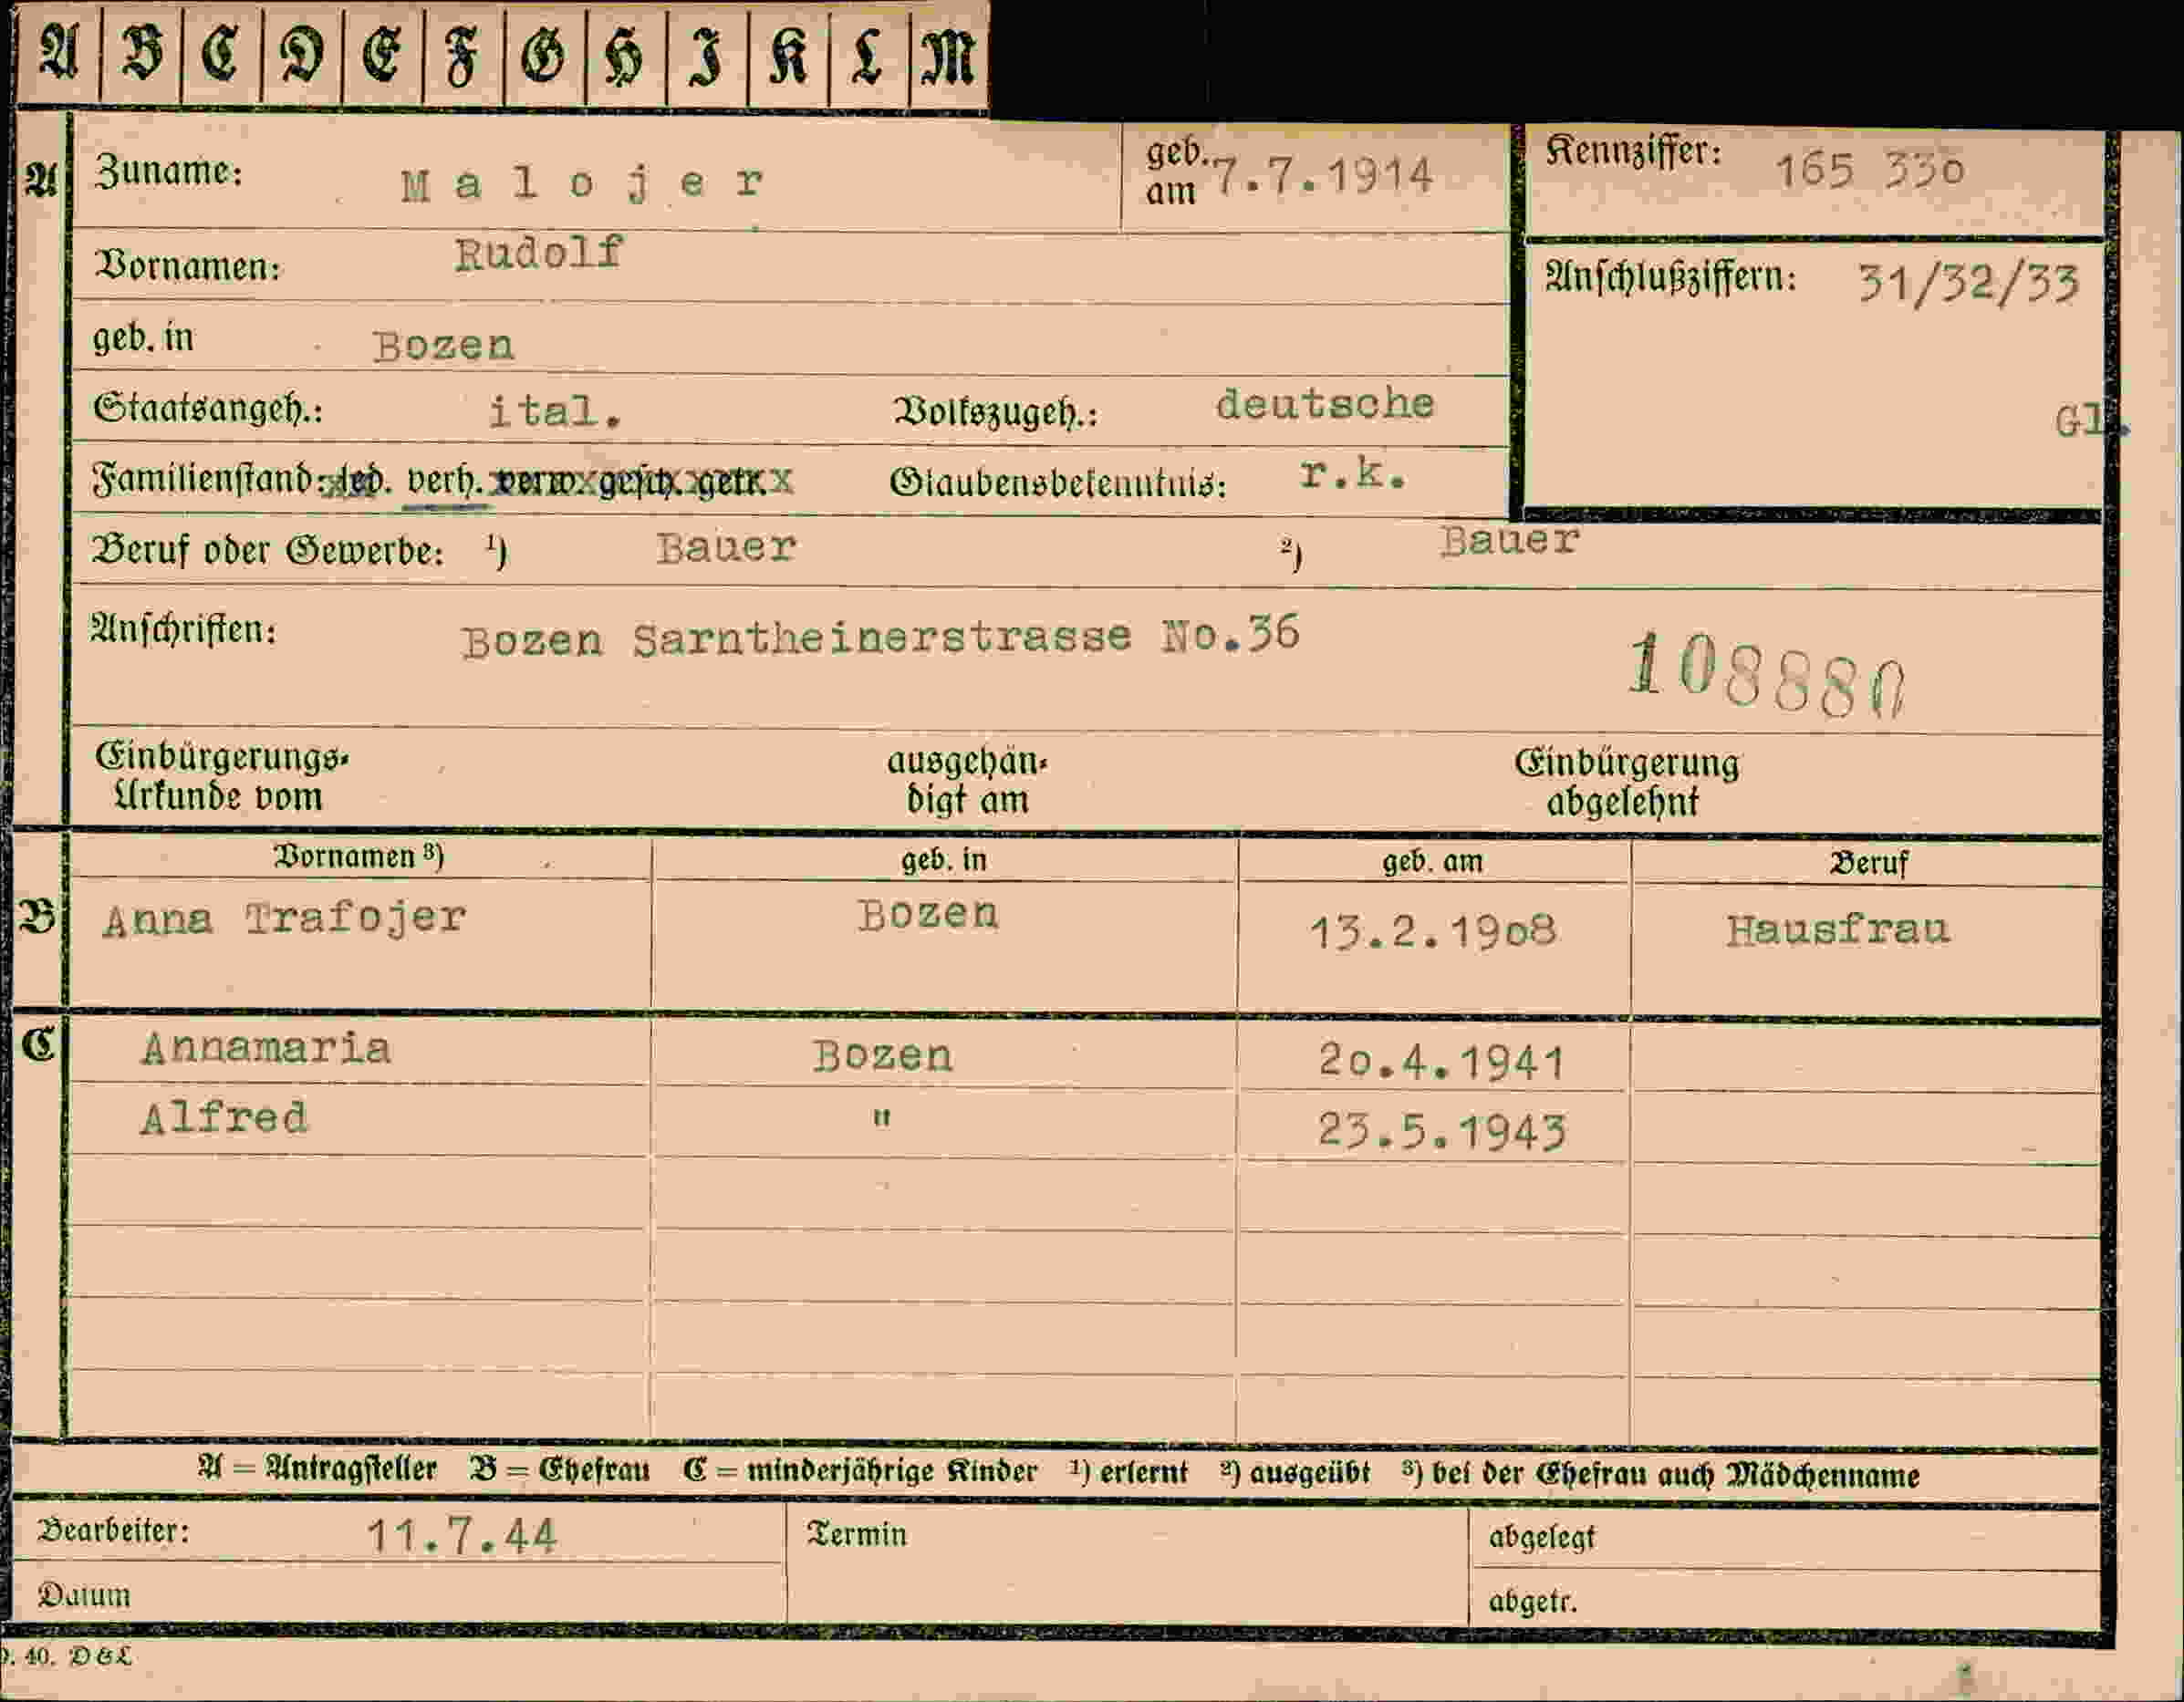 A B C D E F G H I K L M
A Zuname: Malojer geb. am 7.7.1914 Kennziffer: 165 330
Vornamen: Rudolf Anschlußziffern: 31/32/33
geb. in Bozen
Staatsangeh.: ital. Volkszugeh.: deutsche Gl.
Familienstand: led. verh. verw. gesch. getr. Glaubensbekenntnis: r.k.
Beruf oder Gewerbe: 1) Bauer 2) Bauer
Anschriften: Bozen Sarntheinerstrasse No.36 108880
Einbürgerungs-Urkunde vom ausgehändigt am Einbürgerung abgelehnt
Vornamen 3) geb. in geb. am Beruf
B Anna Trafojer Bozen 13.2.1908 Hausfrau
C Annamaria Bozen 20.4.1941
Alfred " 23.5.1943
A = Antragsteller B = Ehefrau C = minderjährige Kinder 1) erlernt 2) ausgeübt 3) bei der Ehefrau auch Mädchenname
Bearbeiter: 11.7.44 Termin abgelegt
Datum abgetr.
40. D&L